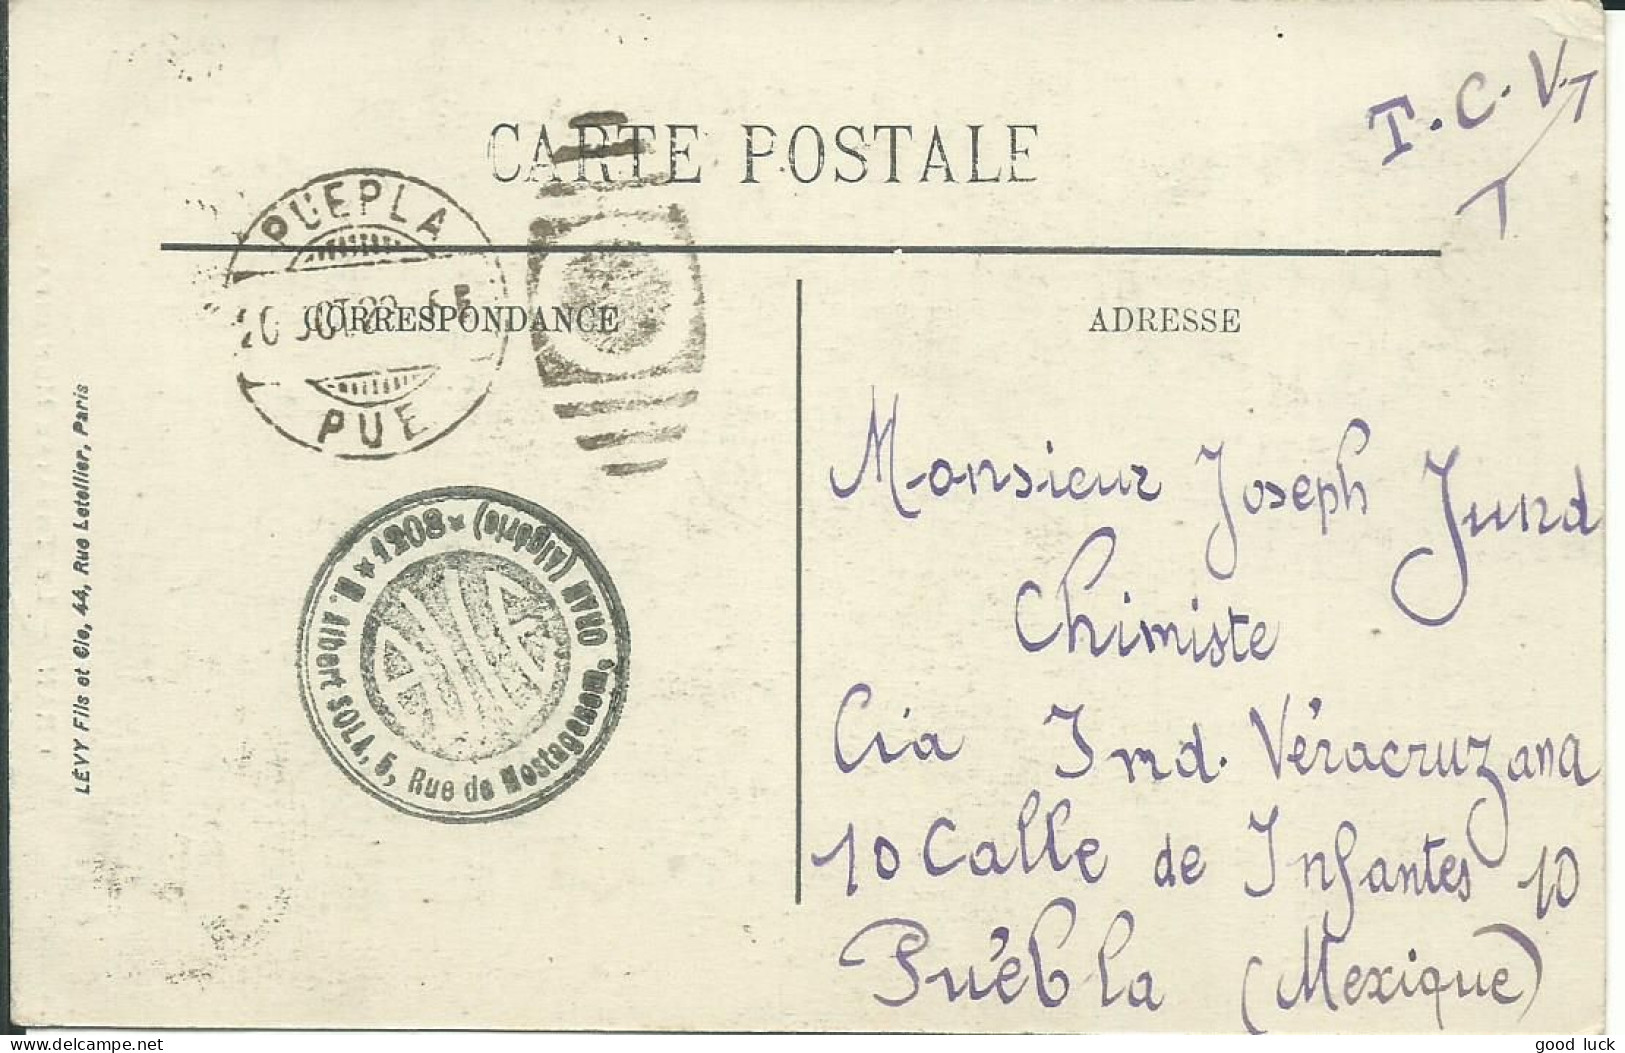 T.C.V.T
T
CARTE POSTALE
PUEPLA
PUE
CORRESPONDANCE
ADRESSE
LÉVY Fils et Cie, 44, Rue Letellier, Paris
M. Albert SOLA, 5, Rue de Mostaganem, ORAN (Algérie)
Monsieur Joseph Jund
Chimiste
Cia Ind. Véracruzana
10 Calle de Infantes 10
Puébla (Mexique)
www.delcampe.net
good luck